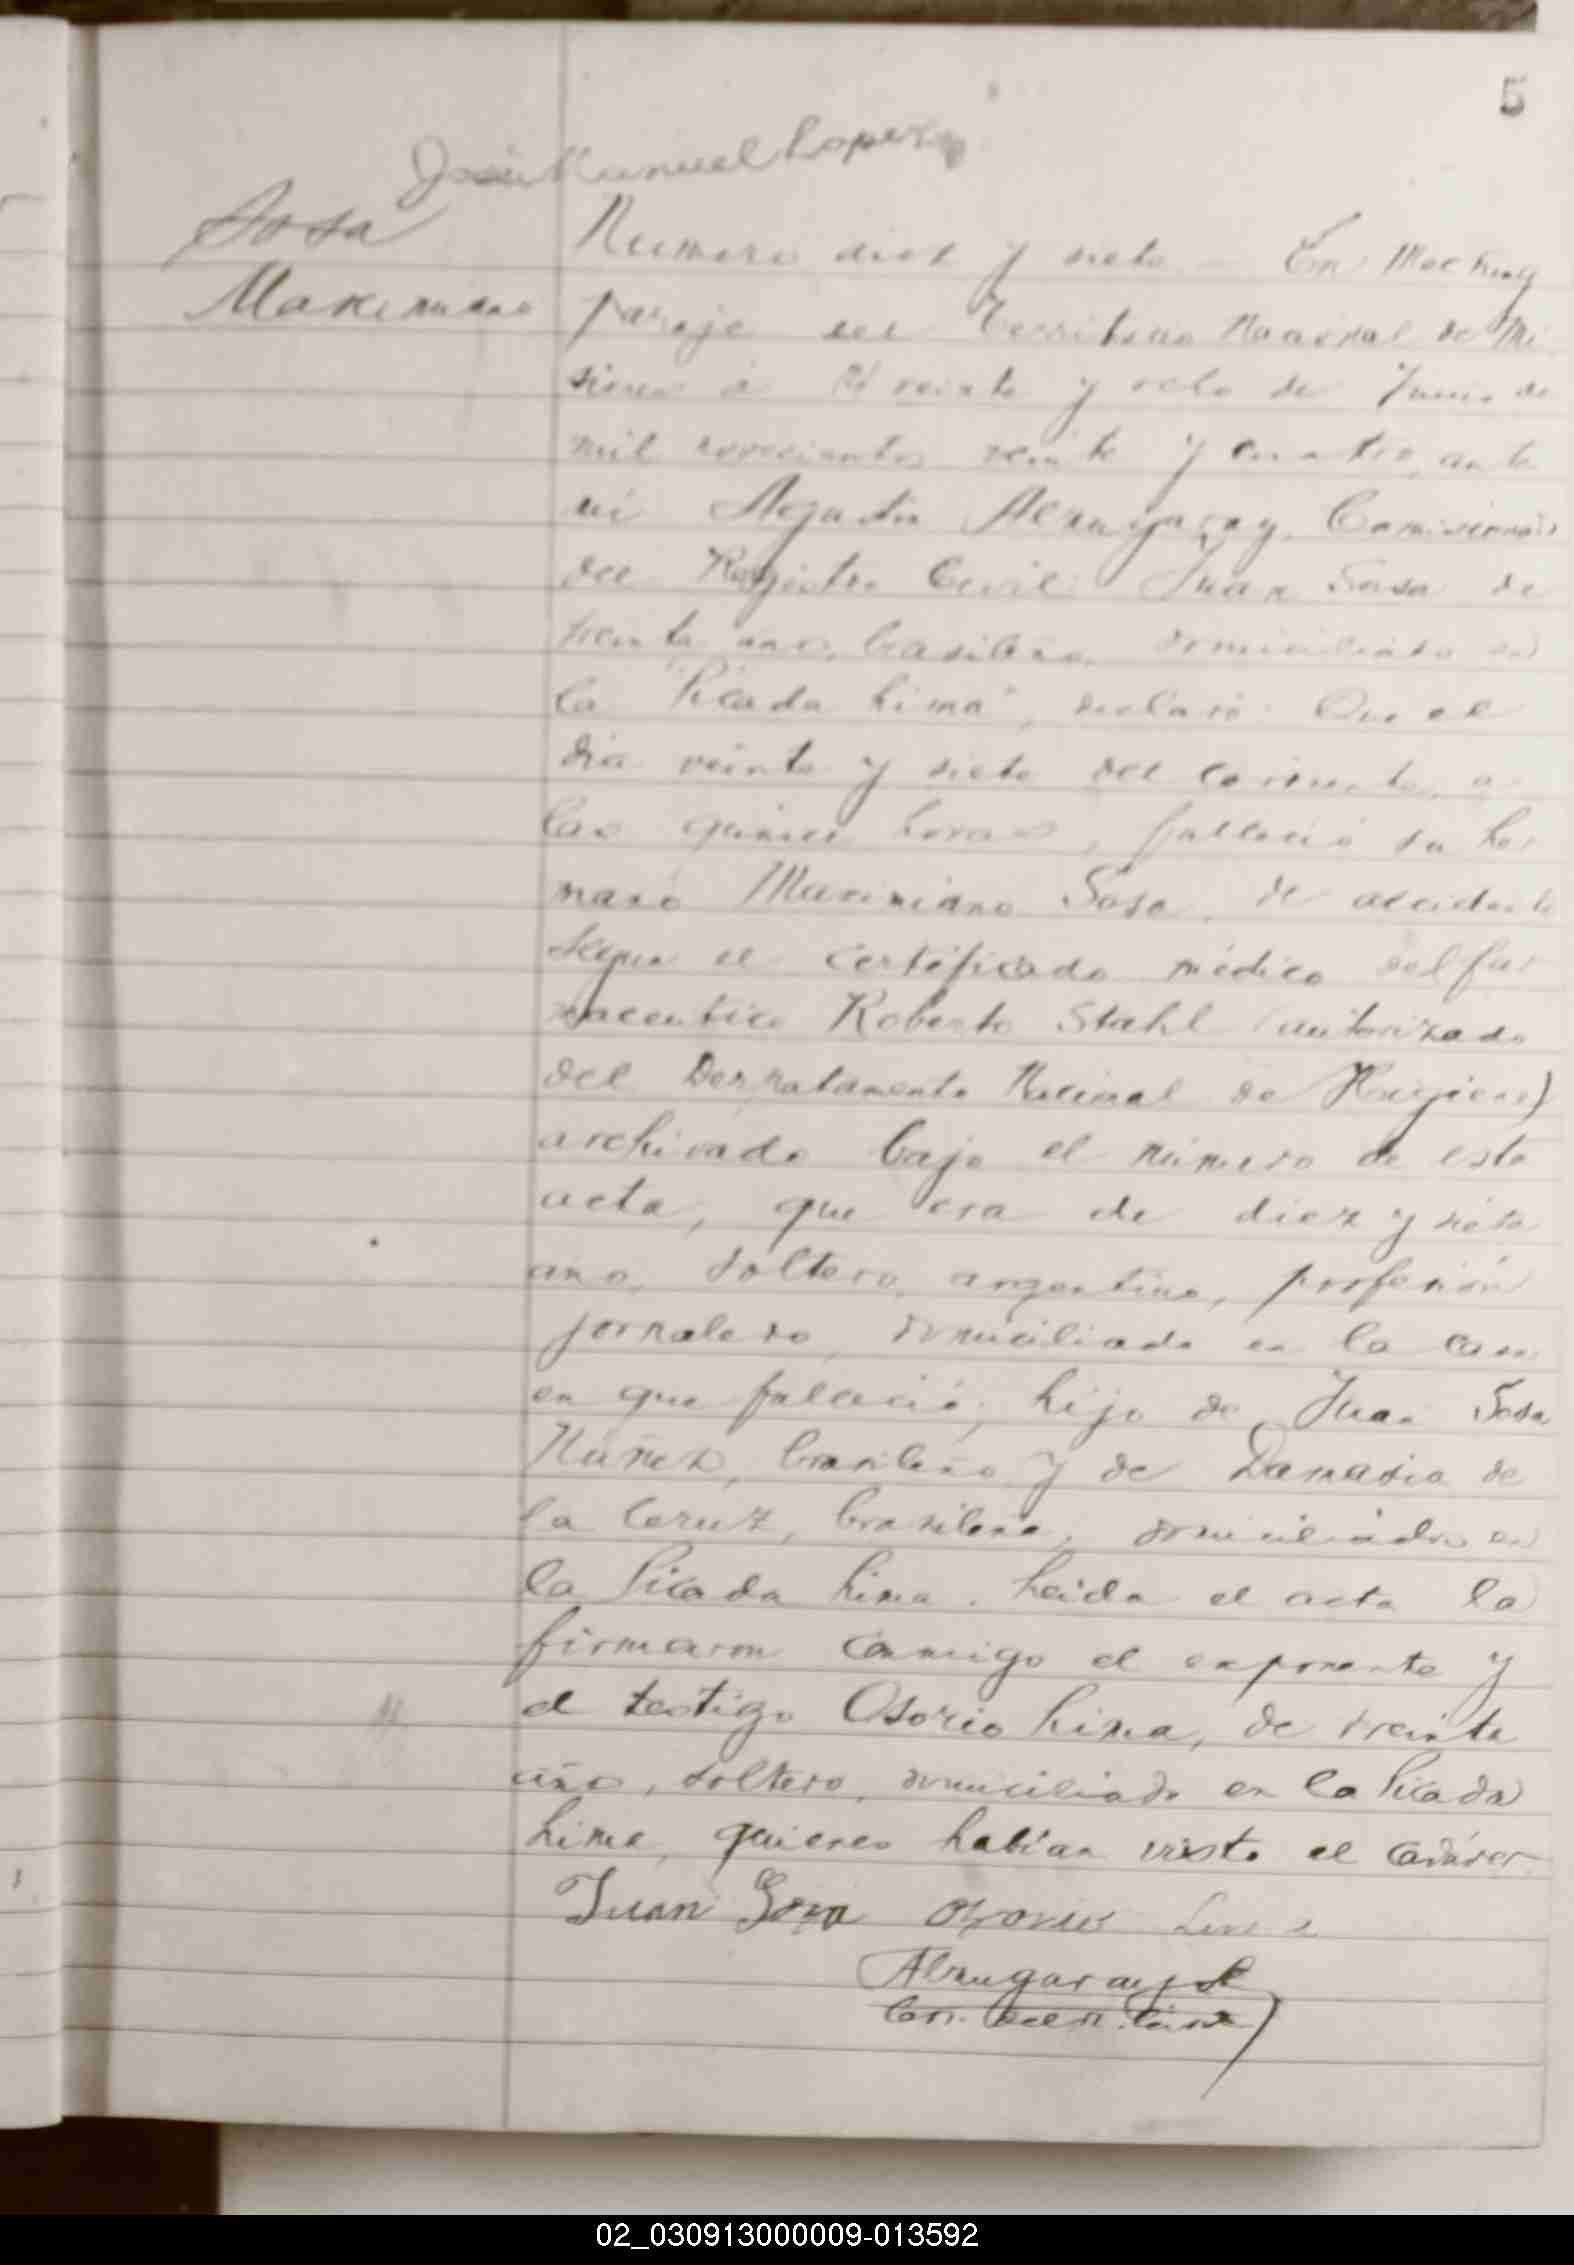 5
José Manuel Lopez
Sosa
Maximiano
Numero diez y siete — En Mecking
paraje del Territorio Nacional de Mi
siones á veinte y ocho de Junio de
mil novecientos veinte y cuatro, ante
mi Agustin Alrugaray, Comisionado
del Registro Civil: Juan Sosa de
treinta años, brasileño, domiciliado en
la "Picada Lima", declaró: Que el
dia veinte y siete del corriente, a
las quince horas, falleció su her
mano Maximiano Sosa, de accidente
segun el certificado médico del far
maceutico Roberto Stahl (autorizado
del Derpatamento Nacional de Higiene)
archivado bajo el número de esta
acta; que era de diez y siete
años, soltero, argentino, profesión
jornalero, domiciliado en la casa
en que falleció; hijo de Juan Sosa
Nuñez, brasileño y de Damasia de
la Cruz, brasileña, domiciliados en
la Picada Lima. Leida el acta la
firmaron conmigo el exponente y
el testigo Osorio Lima, de treinta
años, soltero, domiciliado en la Picada
Lima, quienes habian visto el cadáver
Juan Soza Ozorio Lima
Alrugaray
02_030913000009-013592